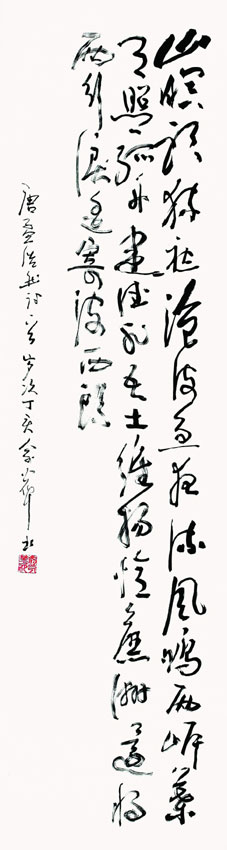 山暝聽猿愁滄江急夜流風鳴兩岸葉
月照一孤舟建德非吾土維揚憶舊遊還將
兩行淚遙寄海西頭
唐孟浩然詩一首歲次丁亥